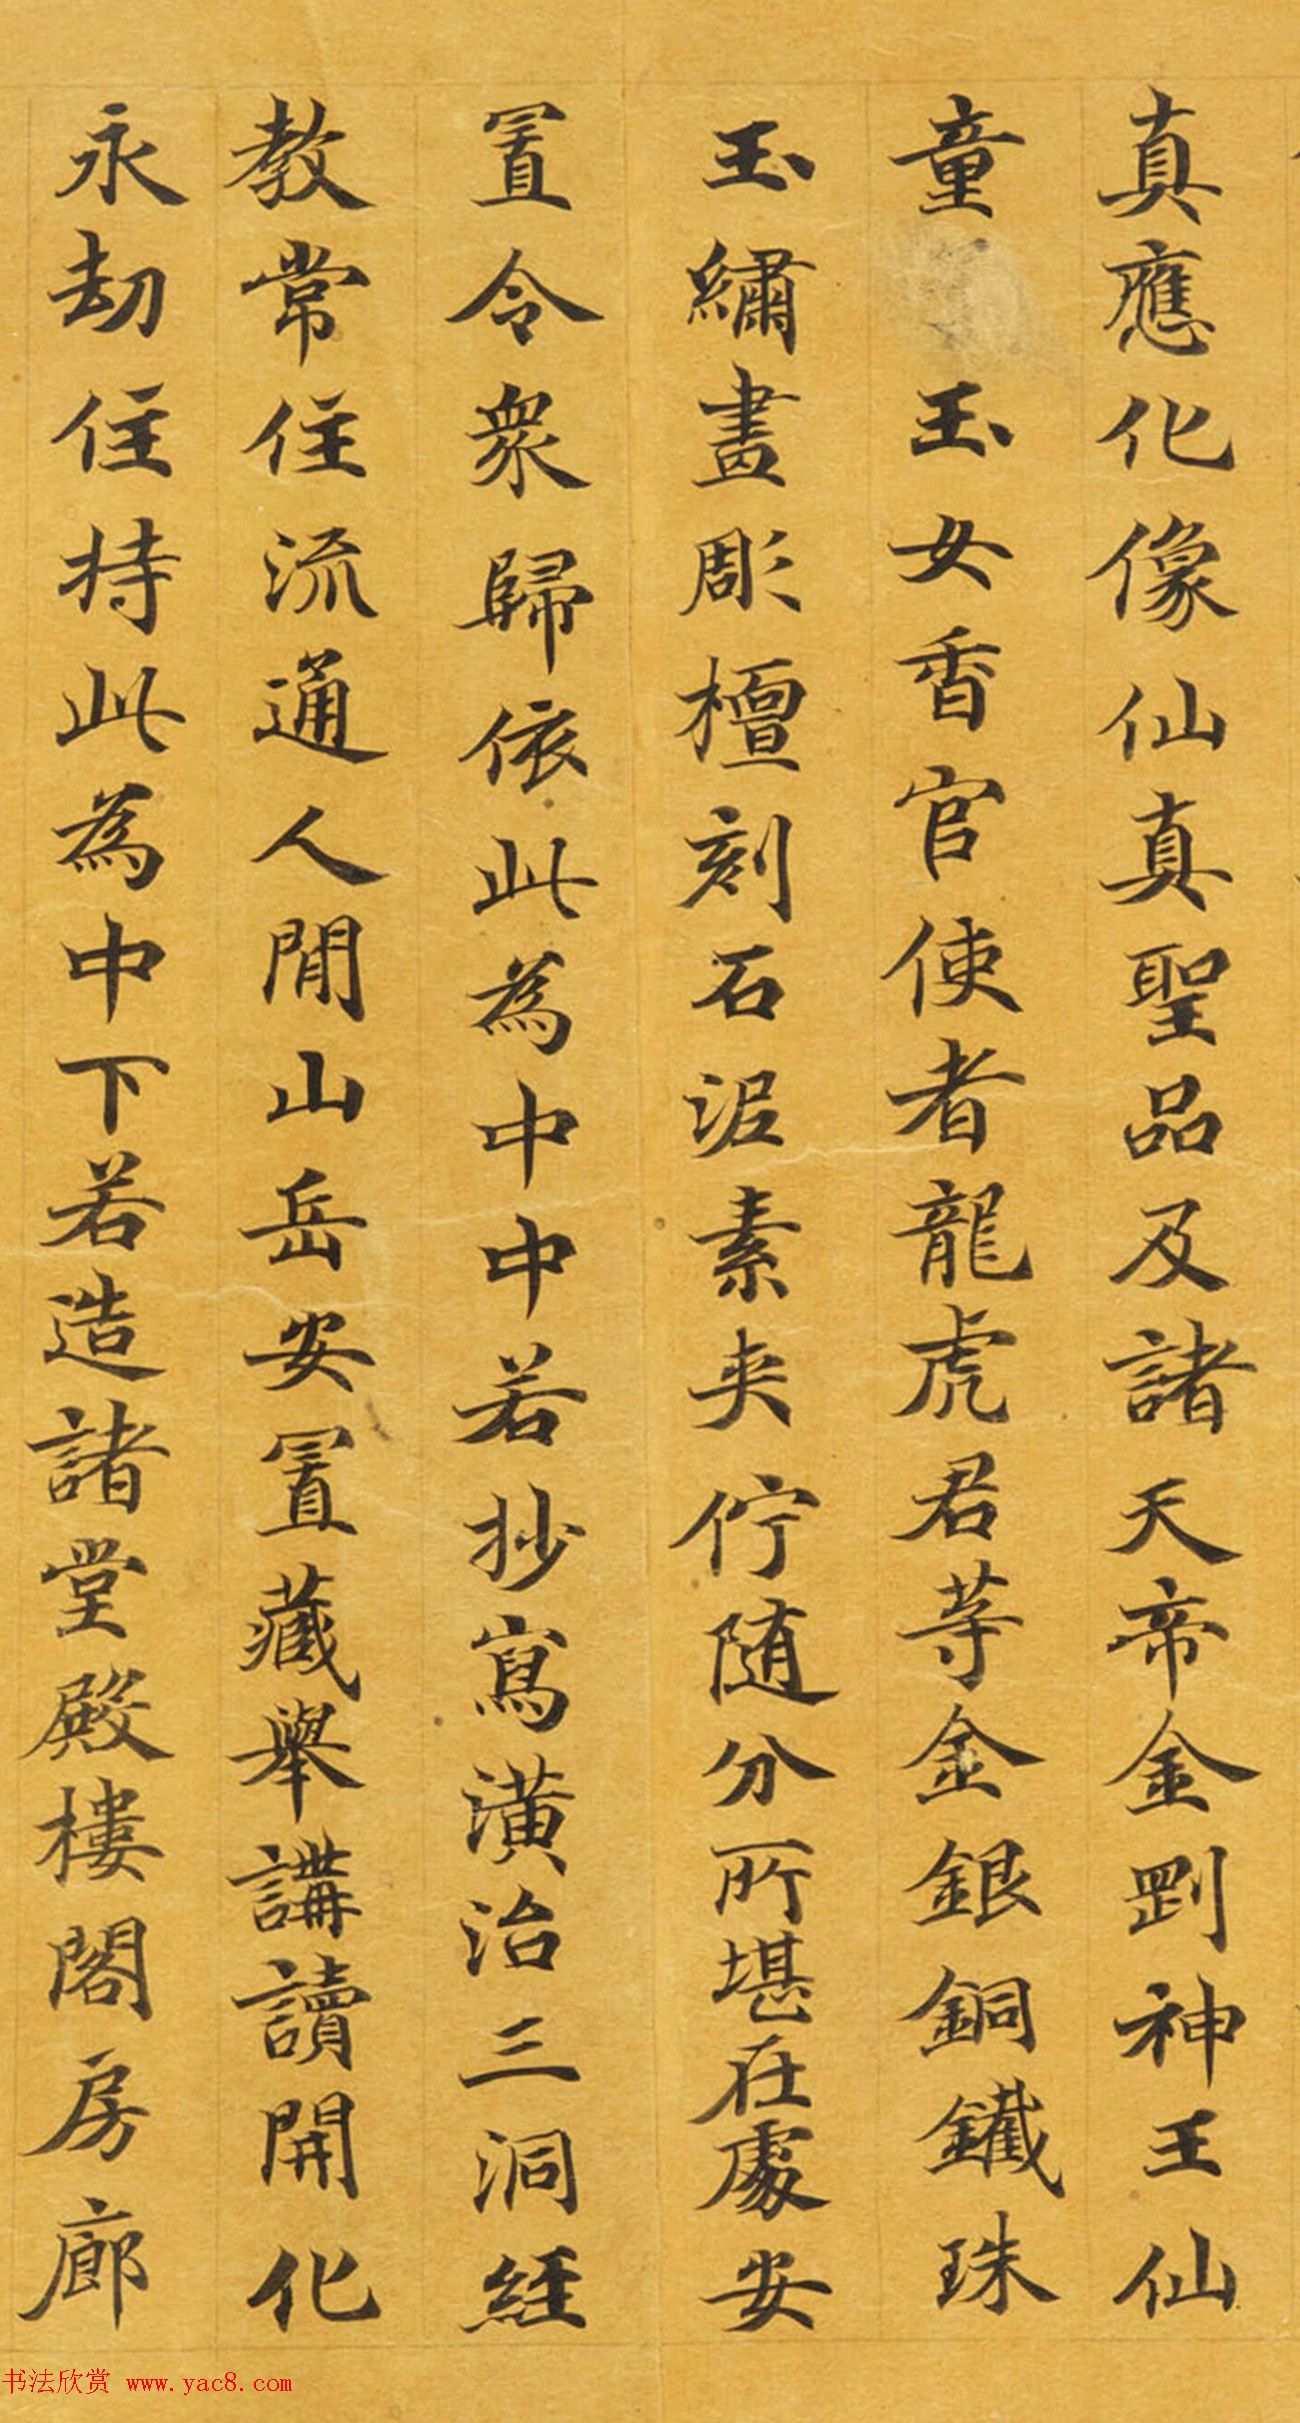 真應化像仙真聖品及諸天帝金剛神王仙
童玉女香官使者龍虎君等金銀銅鐵珠
玉繡畫彫檀刻石泥素夾佇随分所堪在處安
置令衆歸依此為中中若抄寫潢治三洞經
教常住流通人間山岳安置藏舉講讀開化
永劫住持此為中下若造諸堂殿樓閣房廊
书法欣赏 www.yac8.com